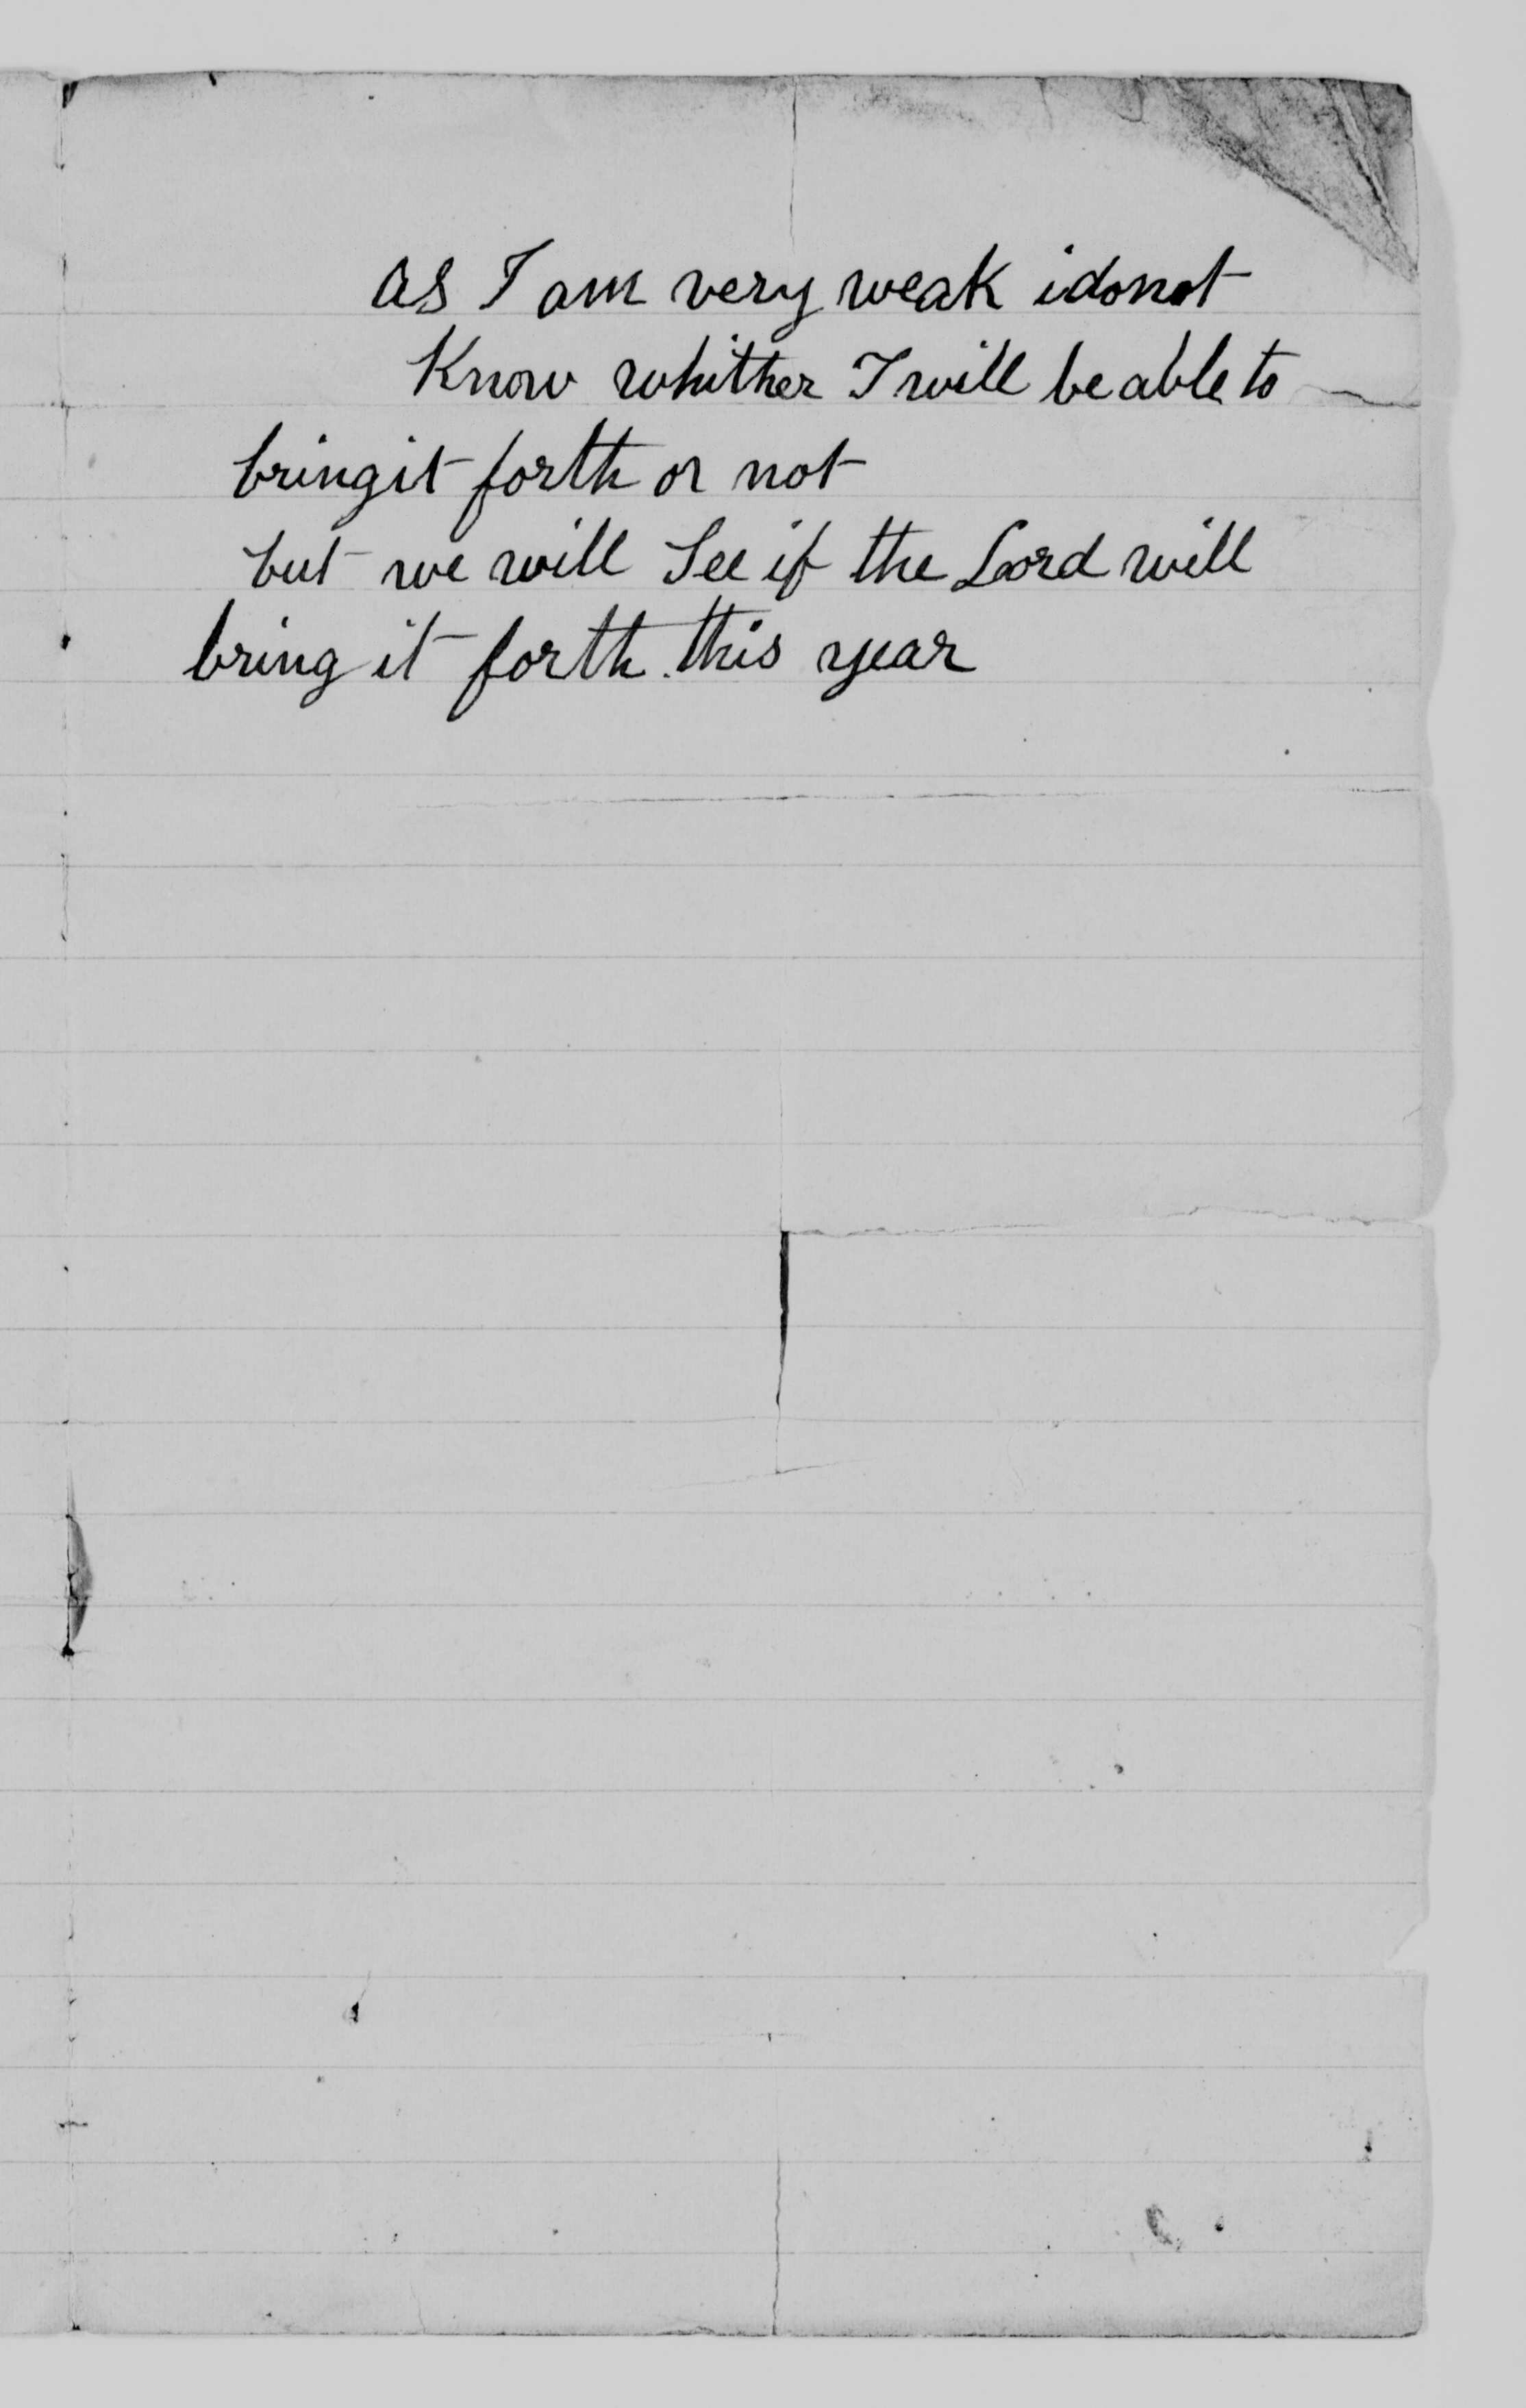 as I am very weak i do not
Know whither I will be able to
bring it forth or not
but we will See if the Lord will
bring it forth this year